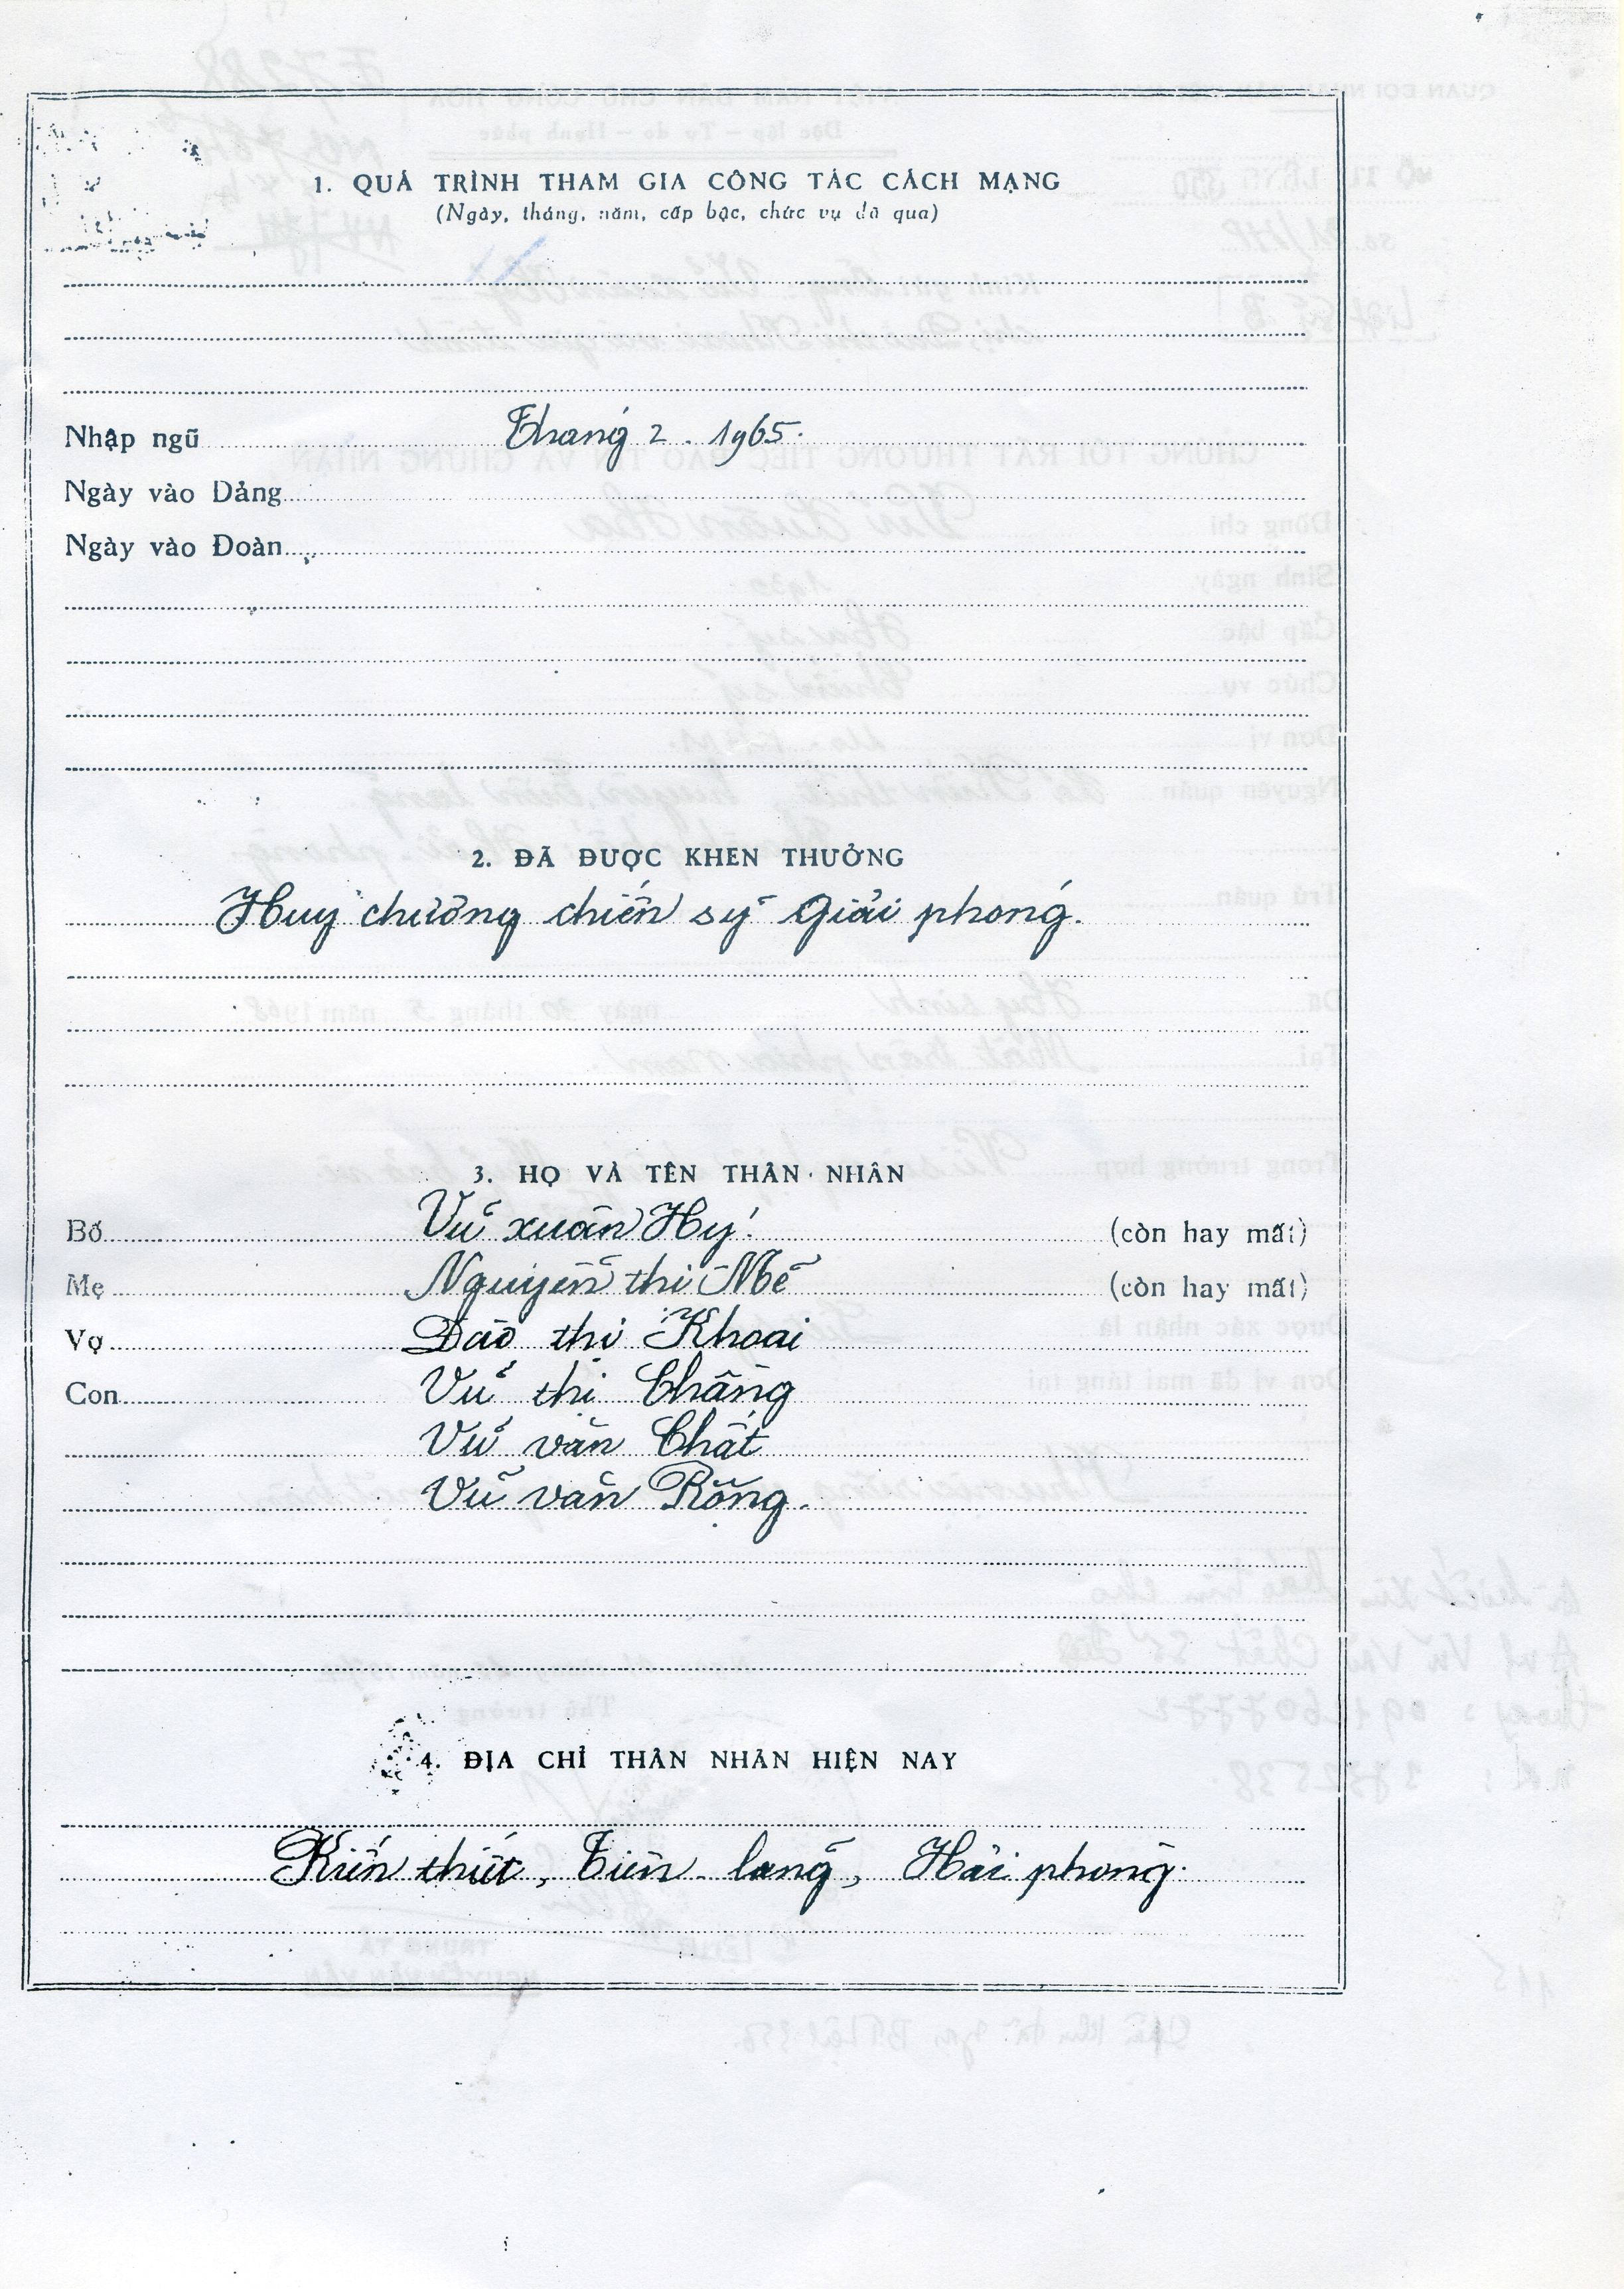 1. QUÁ TRÌNH THAM GIA CÔNG TÁC CÁCH MẠNG
(Ngày, tháng, năm, cấp bậc, chức vụ đã qua)
Nhập ngũ Tháng 2 . 1965.
Ngày vào Đảng
Ngày vào Đoàn
2. ĐÃ ĐƯỢC KHEN THƯỞNG
Huy chương chiến sỹ Giải phóng.
3. HỌ VÀ TÊN THÂN NHÂN
Bố Vũ xuân Hy (còn hay mất)
Mẹ Nguyễn thị (còn hay mất)
Vợ Đào thị Khoai
Con Vũ thị Chăng
Vũ văn Chất
Vũ văn Rỗng.
4. ĐỊA CHỈ THÂN NHÂN HIỆN NAY
Kiến thiết, Tiên - lãng, Hải phòng.